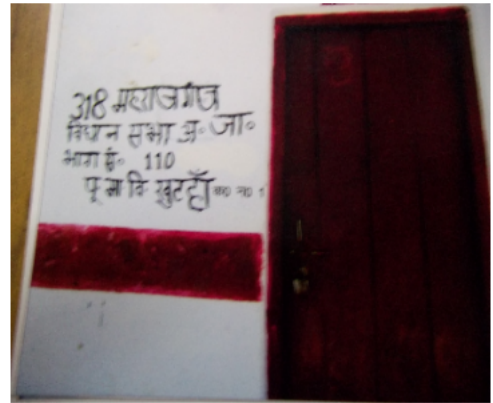 318 महराजगंज
विधान सभा अ॰ जा॰
भाग सं॰ 110
पू मा वि खुटहाँ क॰ न॰ 1